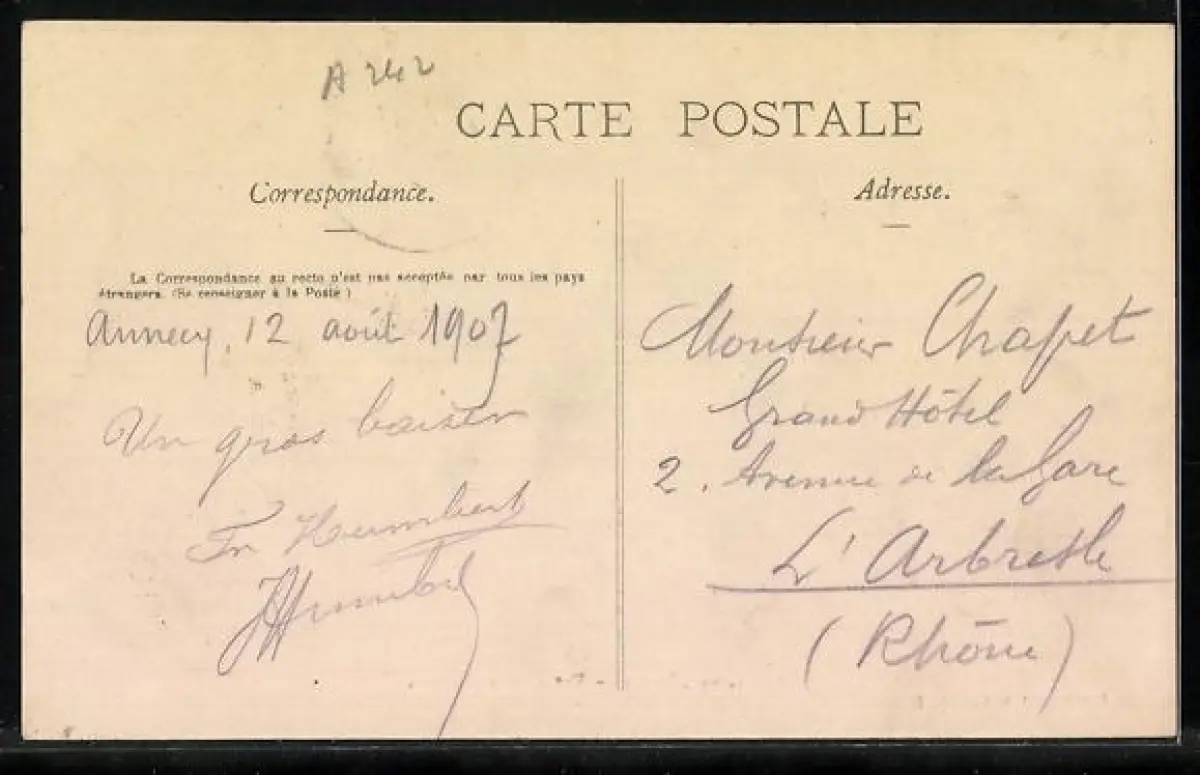 A 242
CARTE POSTALE
Correspondance.
La Correspondance au recto n'est pas acceptée par tous les pays
étrangers. (Se renseigner à la Poste)
Annecy, 12 août 1907
Un gros baiser
Humbert
Adresse.
Monsieur Chapet
Grand Hôtel
2. Avenue de la Gare
L'Arbresle
(Rhône)